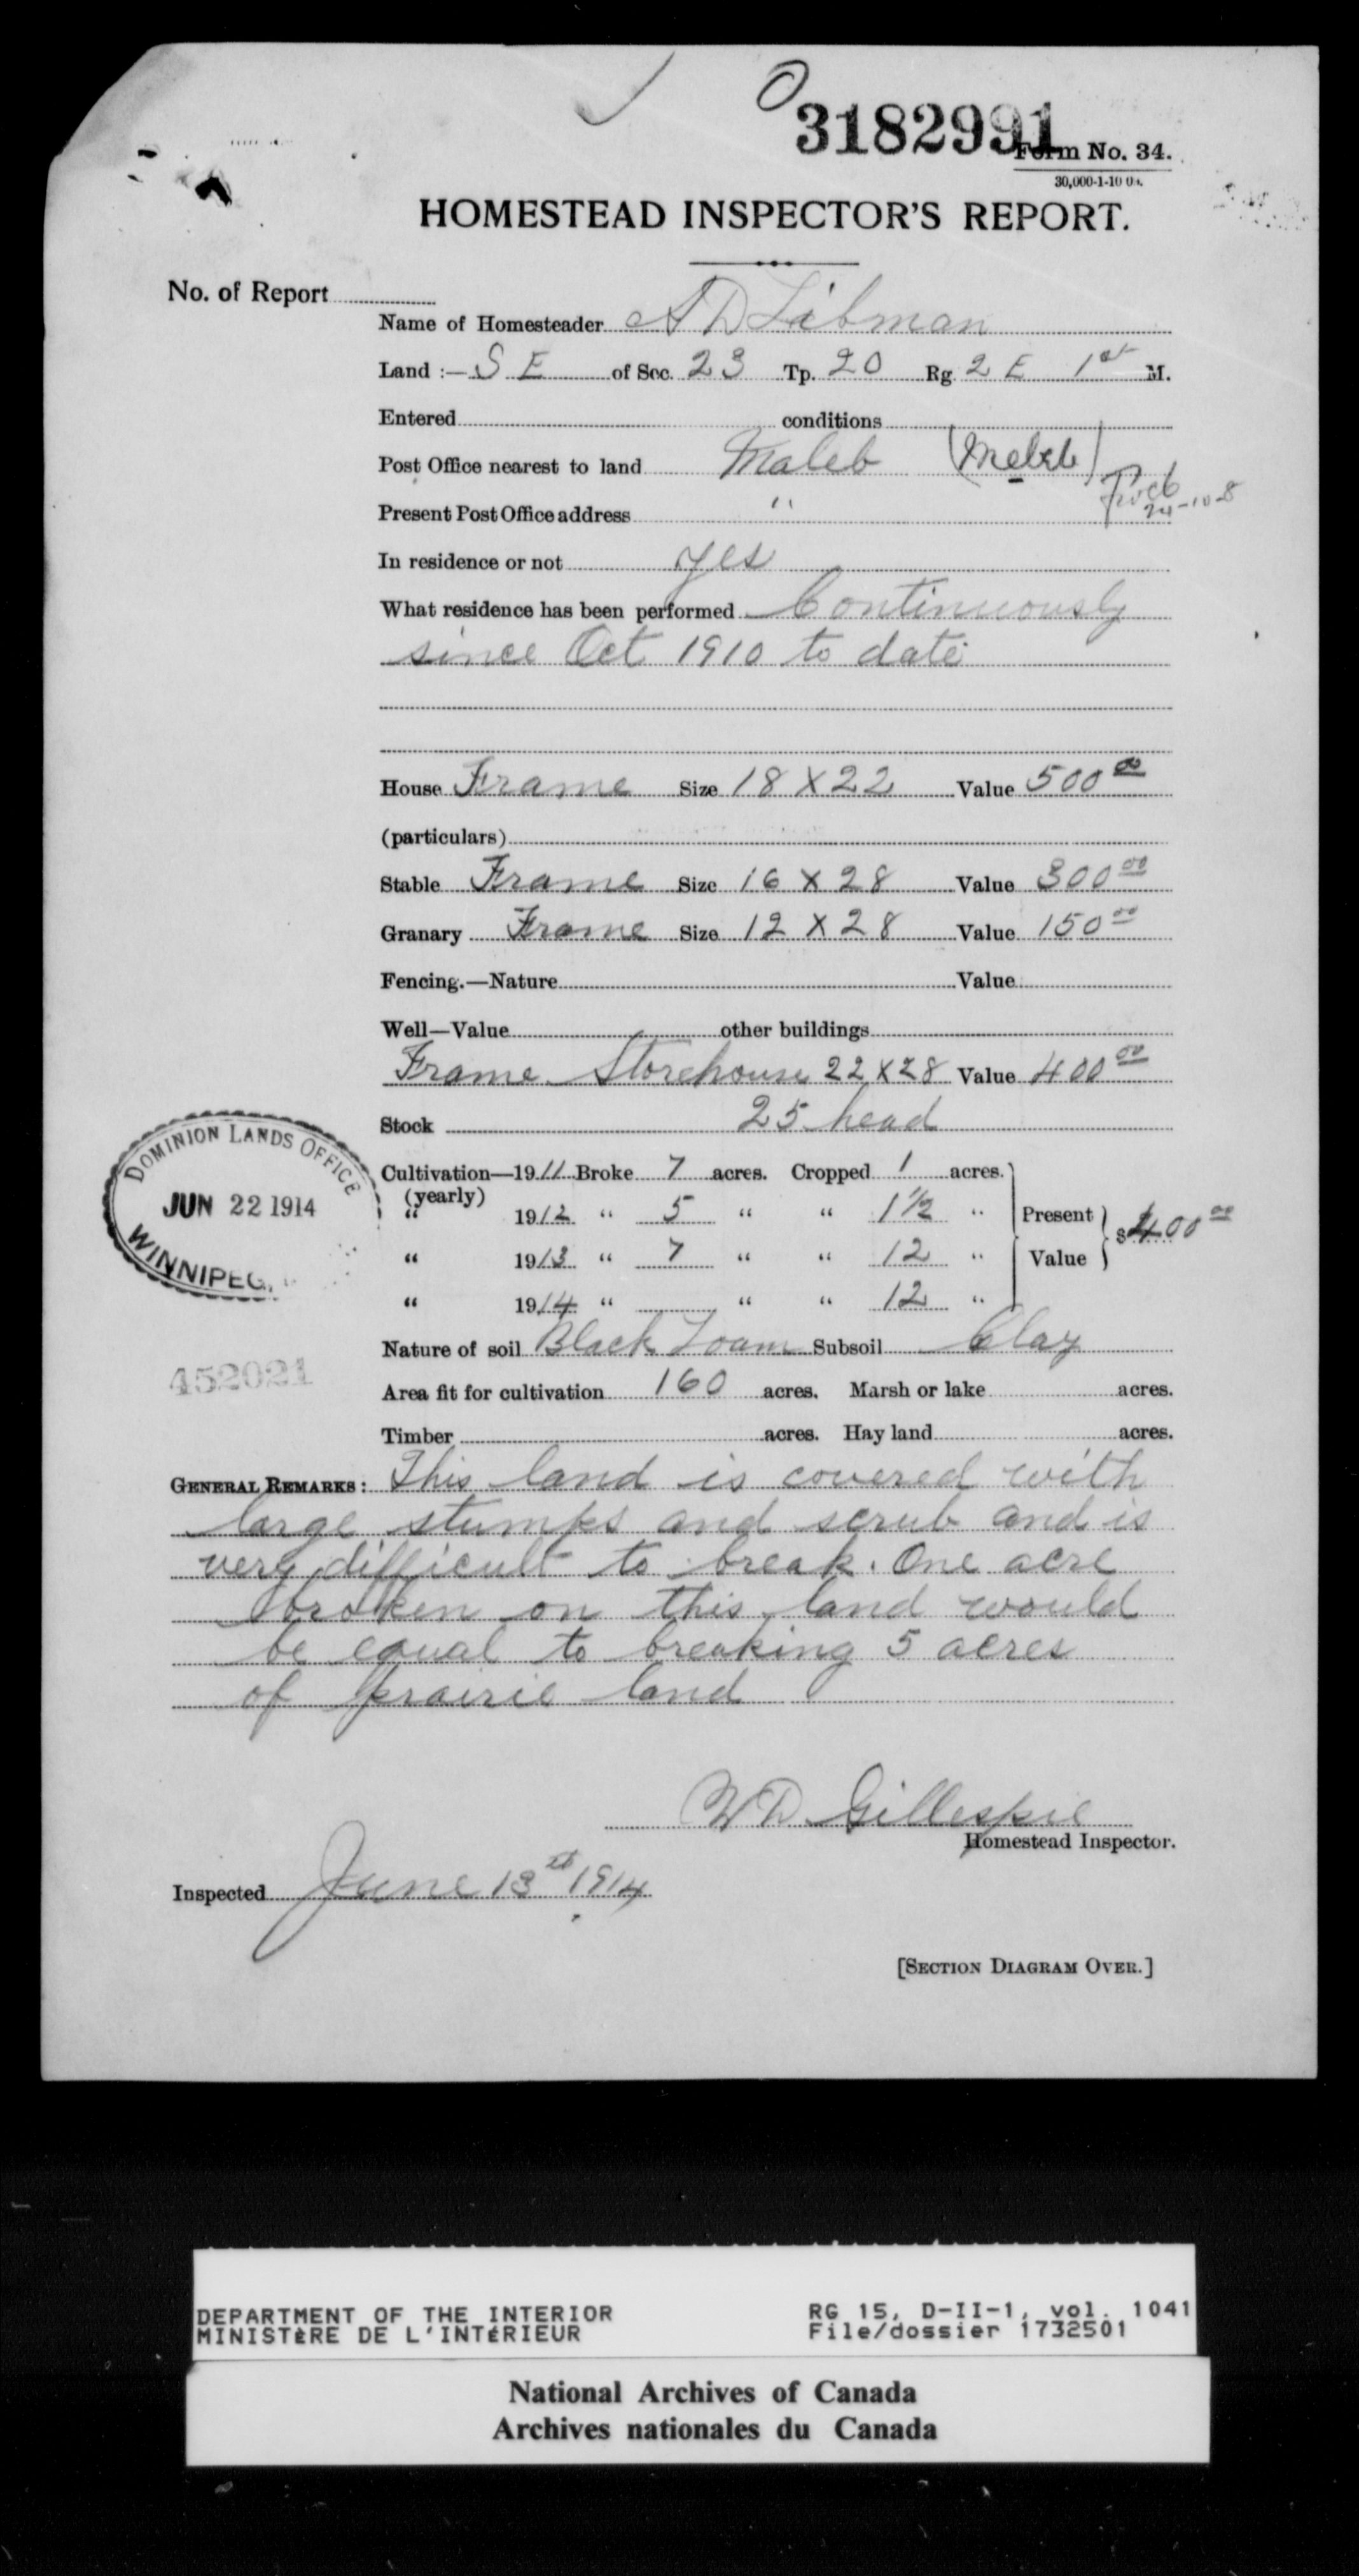 3182991
Form No. 34.
HOMESTEAD INSPECTOR'S REPORT.
No. of Report
Name of Homesteader A D Libman
Land :— S E of Sec. 23 Tp. 20 Rg. 2 E 1st M.
Entered conditions
Post Office nearest to land Maleb (Meleb)
Present Post Office address "
24-10-8
In residence or not yes
What residence has been performed Continuously
since Oct 1910 to date
House Frame Size 18 X 22 Value 500 00
(particulars)
Stable Frame Size 16 X 28 Value 300 00
Granary Frame Size 12 X 28 Value 150 00
Fencing.—Nature Value
Well—Value other buildings
Frame Storehouse 22 X 28 Value 400 00
Stock 25 head
Cultivation—1911 Broke 7 acres. Cropped 1 acres.
(yearly)
" 1912 " 5 " " 1 1/2 " Present
" 1913 " 7 " " 12 " Value $400 00
" 1914 " " " 12 "
DOMINION LANDS OFFICE
JUN 22 1914
WINNIPEG,
Nature of soil Black Loam Subsoil Clay
452021
Area fit for cultivation 160 acres. Marsh or lake acres.
Timber acres. Hay land acres.
GENERAL REMARKS: This land is covered with
large stumps and scrub and is
very difficult to break. One acre
broken on this land would
be equal to breaking 5 acres
of prairie land
W D Gillespie
Homestead Inspector.
Inspected June 13th 1914
[SECTION DIAGRAM OVER.]
DEPARTMENT OF THE INTERIOR RG 15, D-II-1, vol. 1041
MINISTÈRE DE L'INTÉRIEUR File/dossier 1732501
National Archives of Canada
Archives nationales du Canada